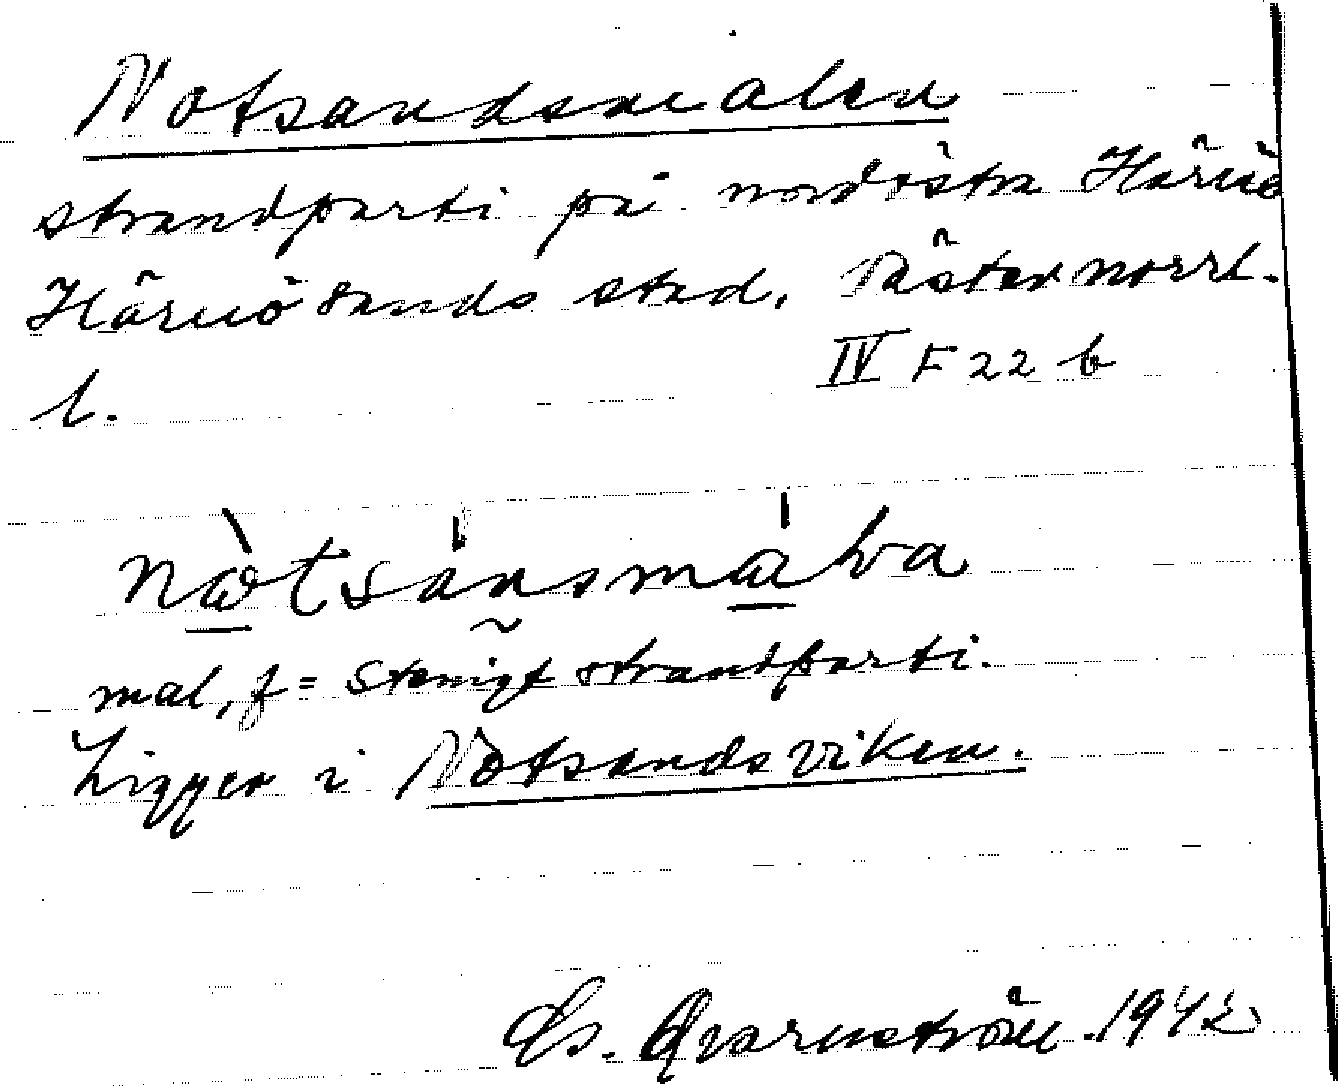 Notsandsmalen
strandparti på nordöstra Härnö
Härnösands stad, Västernorrl.
l.
IV F 22 b
mal, f = stenigt strandparti.
Ligger i Notsandsviken.
Qvarnström. 1942